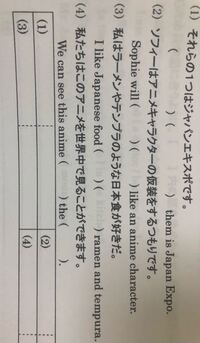 (1) それらの1つはジャパンエキスポです。
(　　) (　　) them is Japan Expo.
(2) ソフィーはアニメキャラクターの仮装をするつもりです。
Sophie will (　　) (　　) like an anime character.
(3) 私はラーメンやテンプラのような日本食が好きだ。
I like Japanese food (　　) (　　) ramen and tempura.
(4) 私たちはこのアニメを世界中で見ることができます。
We can see this anime (　　) the (　　).
(1) (2)
(3) (4)